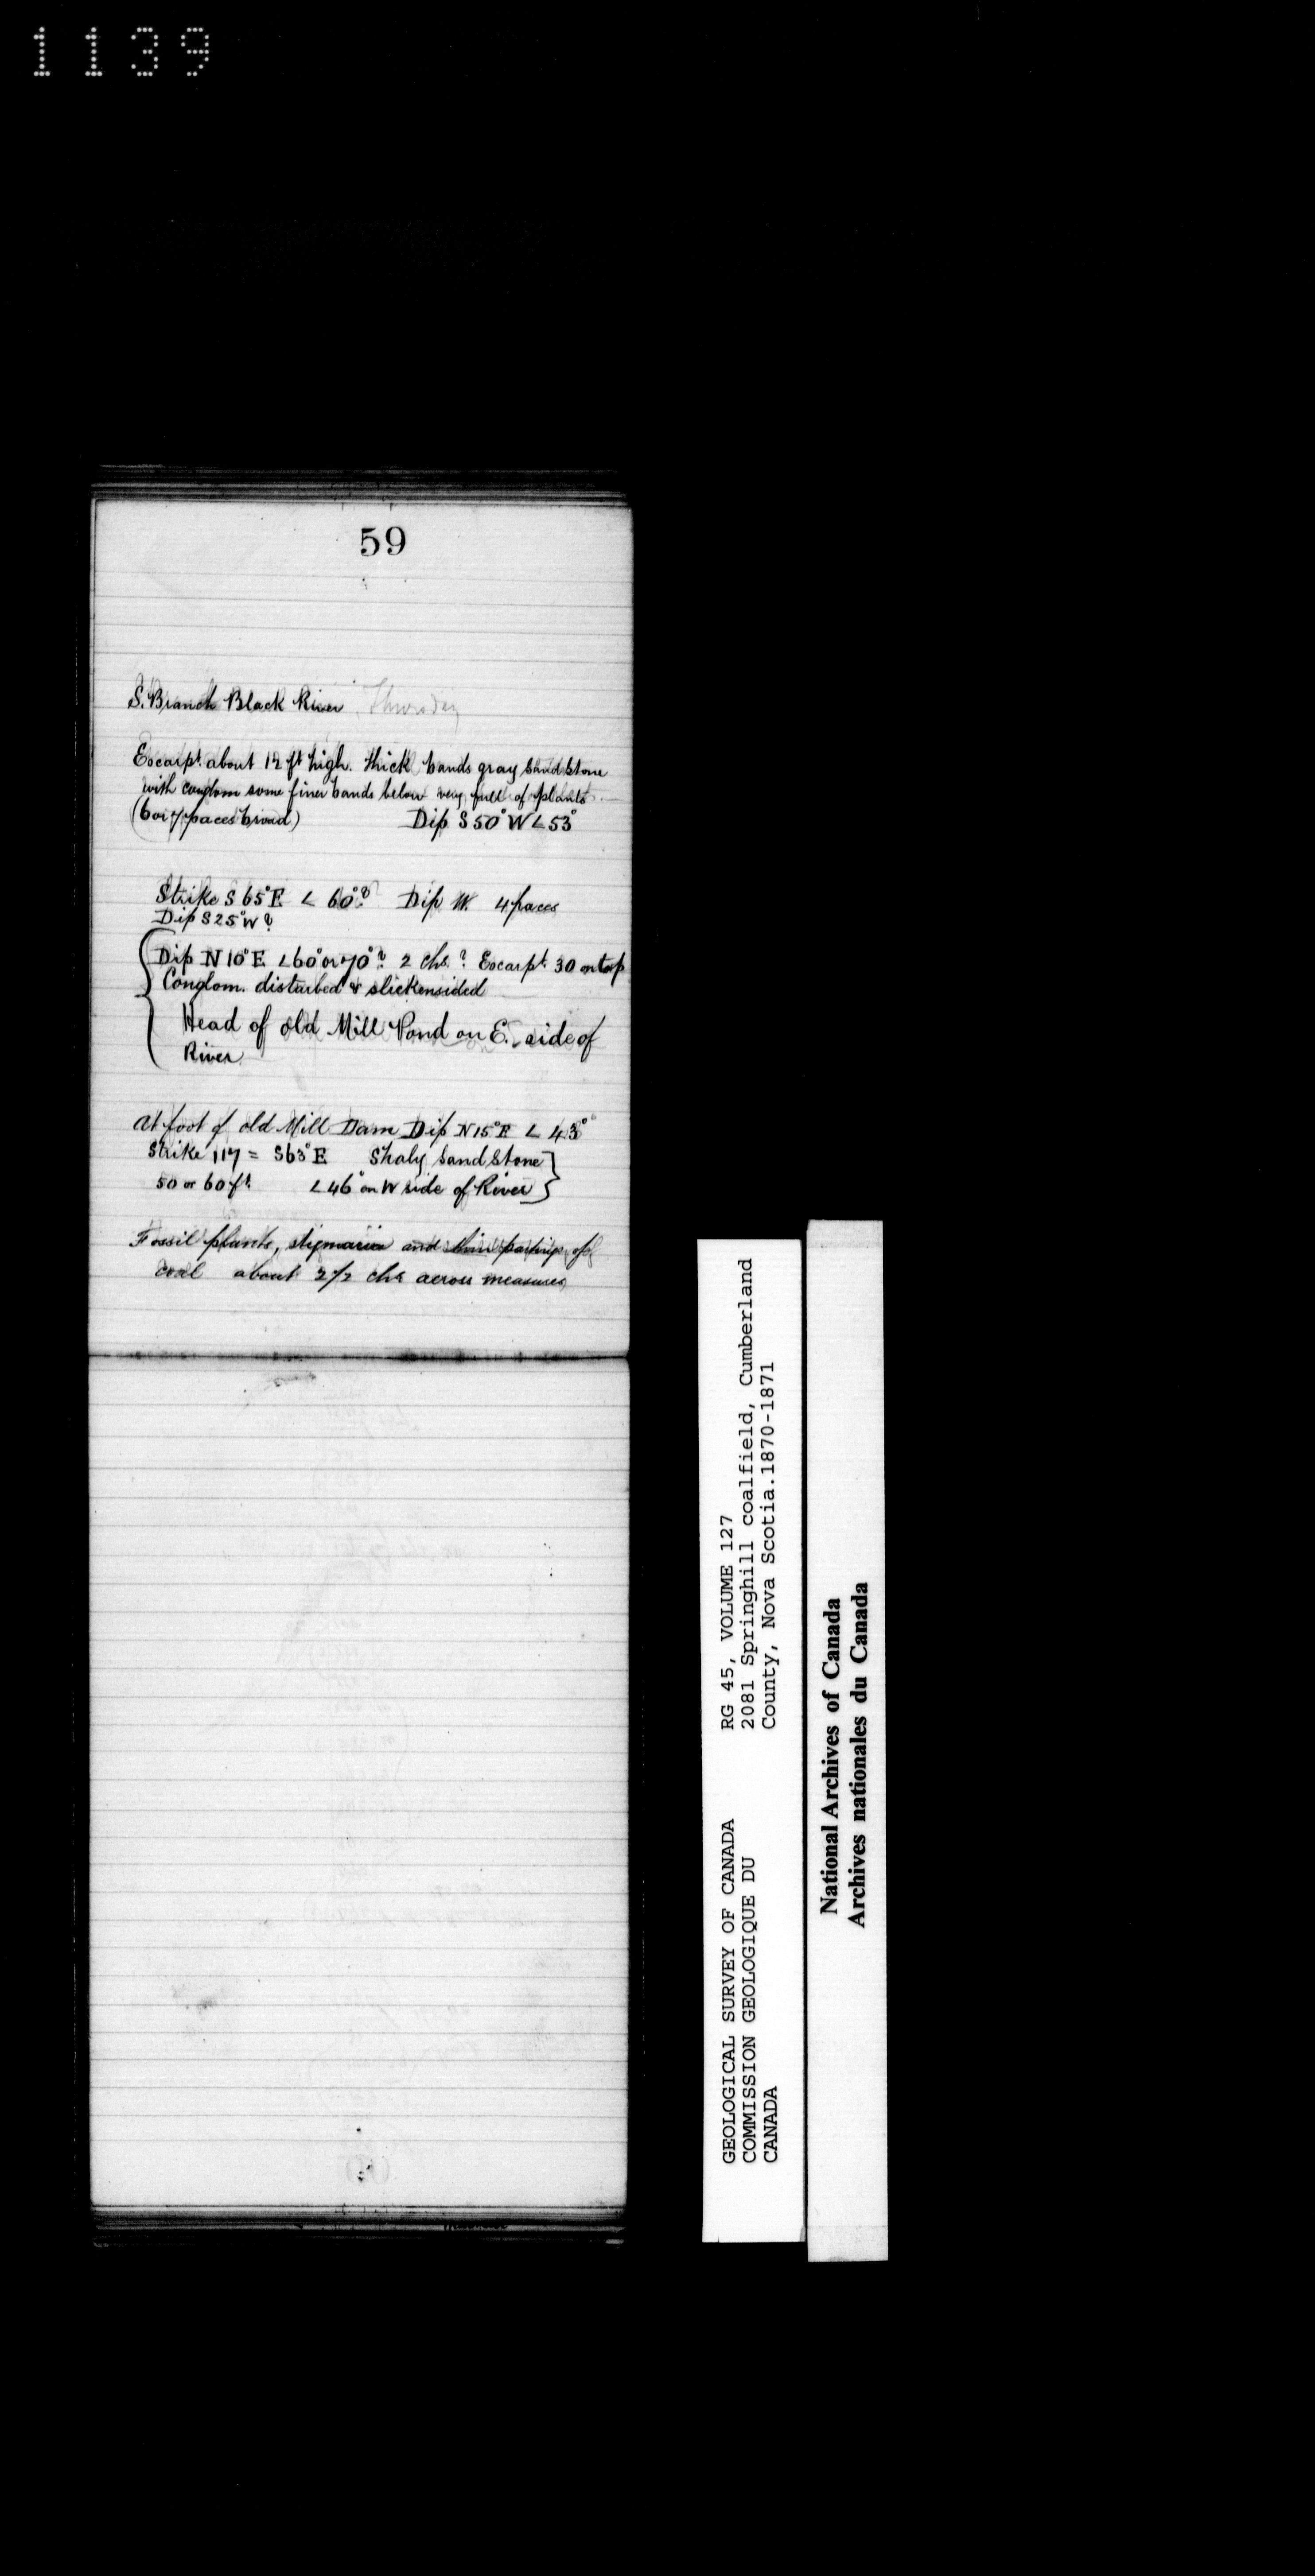 1139
59
S. Branch Black River Thursday
Escarpt. about 12 ft high. thick bands gray sandstone
with conglom some finer bands below very full of plants
(6 or 7 paces broad) Dip S 50° W ∠ 53°
Strike S 65° E ∠ 60°? Dip W. 4 paces
Dip S 25° W?
Dip N 10° E ∠ 60° or 70°? 2 chs.? Escarpt. 30 on top
Conglom. disturbed & slickensided
Head of old Mill Pond on E. side of
River
At foot of old Mill Dam Dip N 15° E ∠ 43°
Strike 117 = S 63° E Shaly sandstone
50 or 60 ft ∠ 46° on W side of River
Fossil plants, stigmaria and thin partings of
coal about 2 1/2 chs across measures
GEOLOGICAL SURVEY OF CANADA
COMMISSION GEOLOGIQUE DU
CANADA
RG 45, VOLUME 127
2081 Springhill coalfield, Cumberland
County, Nova Scotia.1870-1871
National Archives of Canada
Archives nationales du Canada